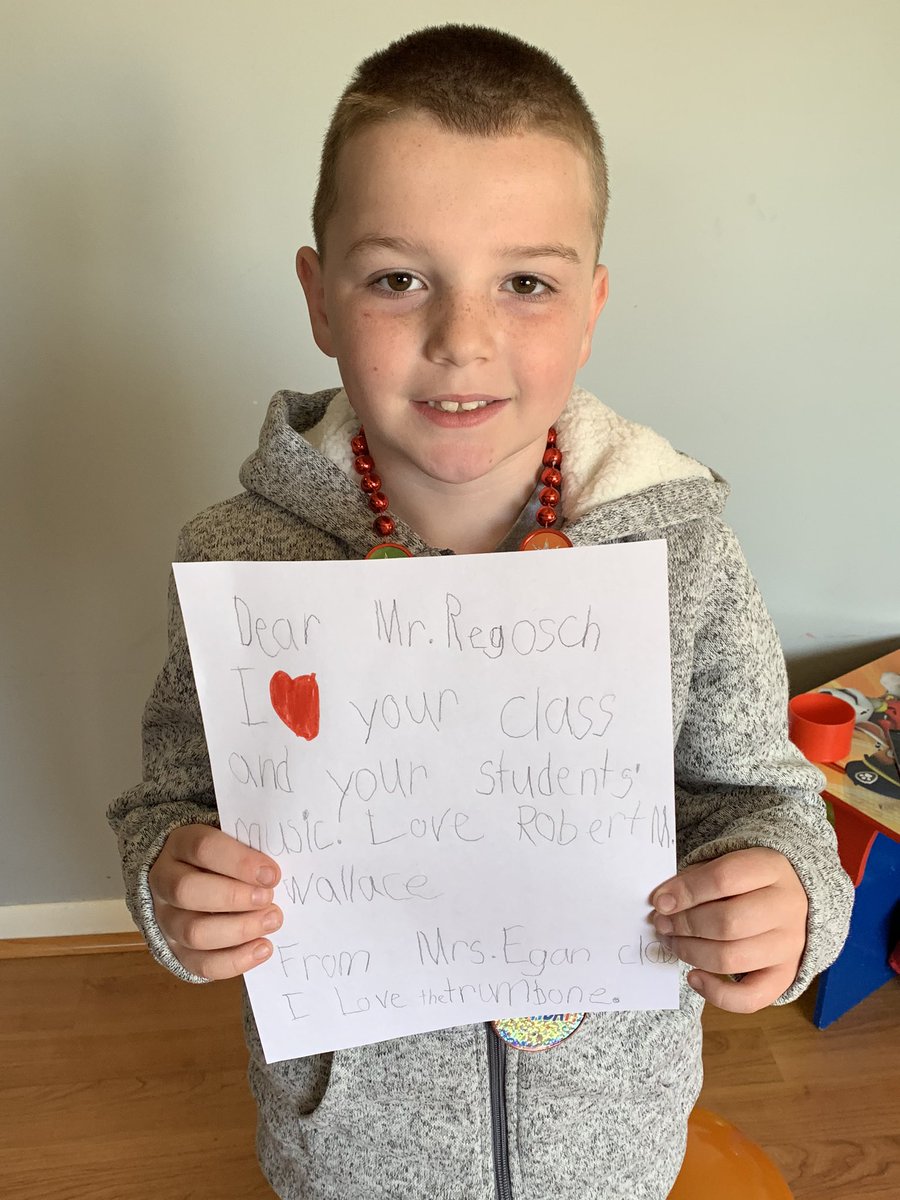 Dear Mr. Regosch
I ❤ your class
and your students'
music. Love Robert M.
Wallace
From Mrs. Egan class
I Love the trumbone.